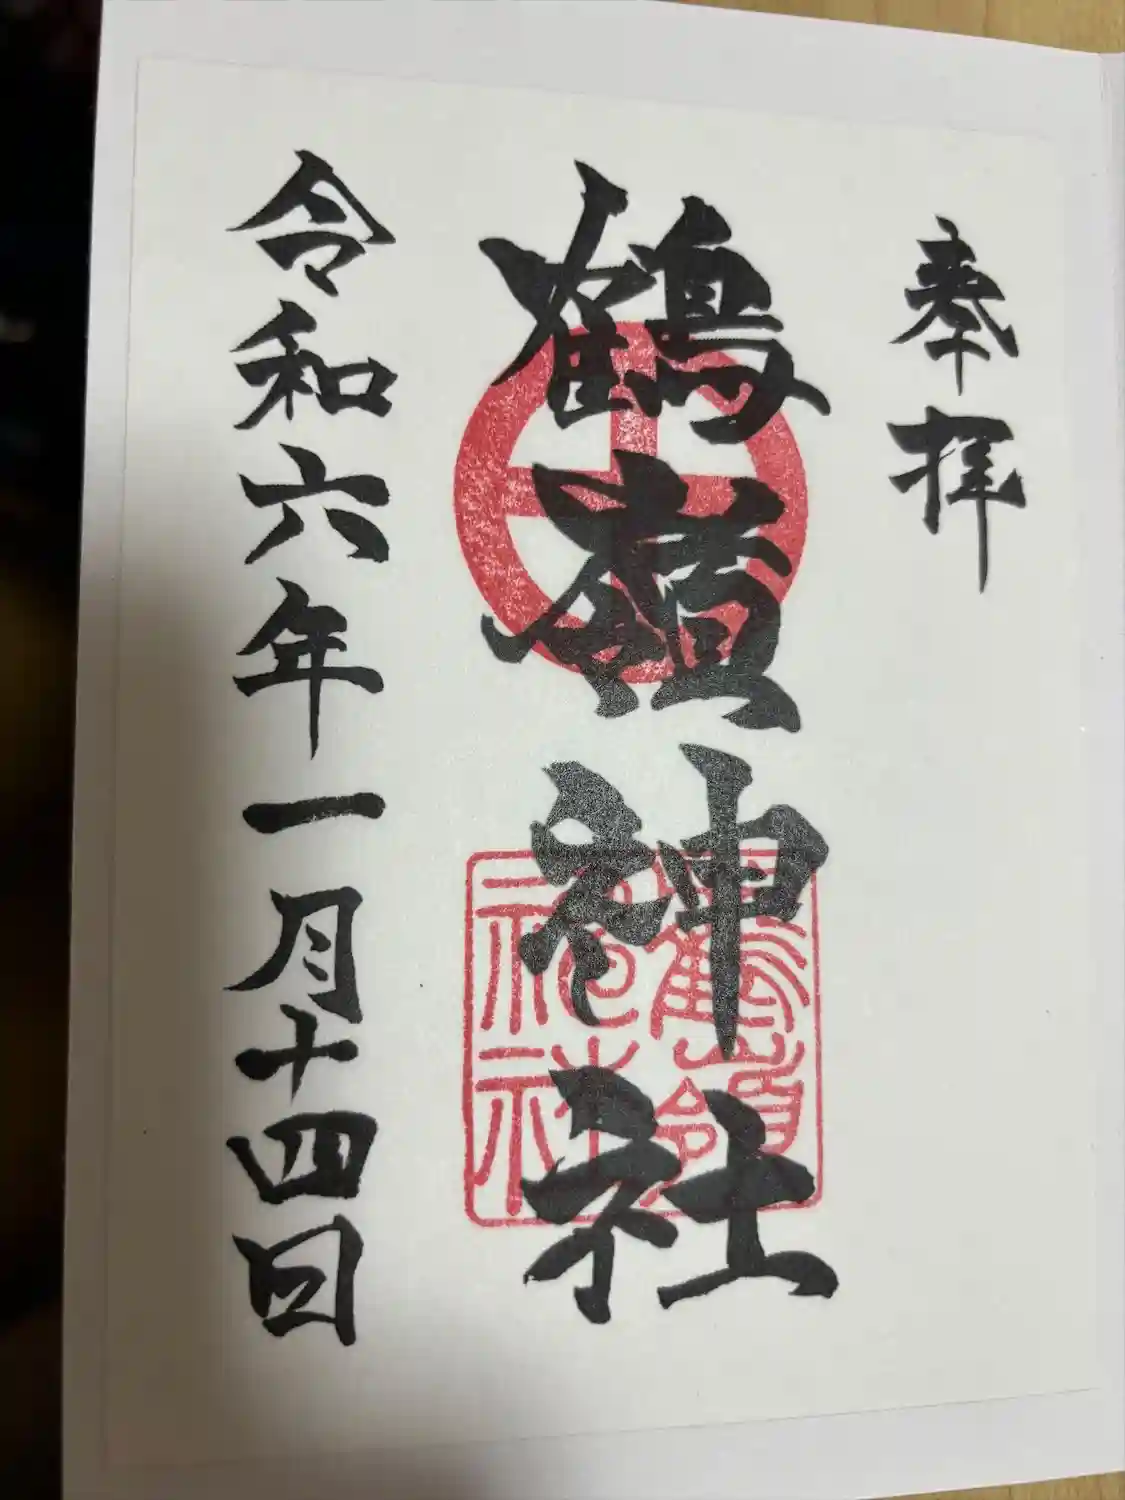 奉拝
鶴嶺神社
鶴嶺神社
令和六年一月十四日